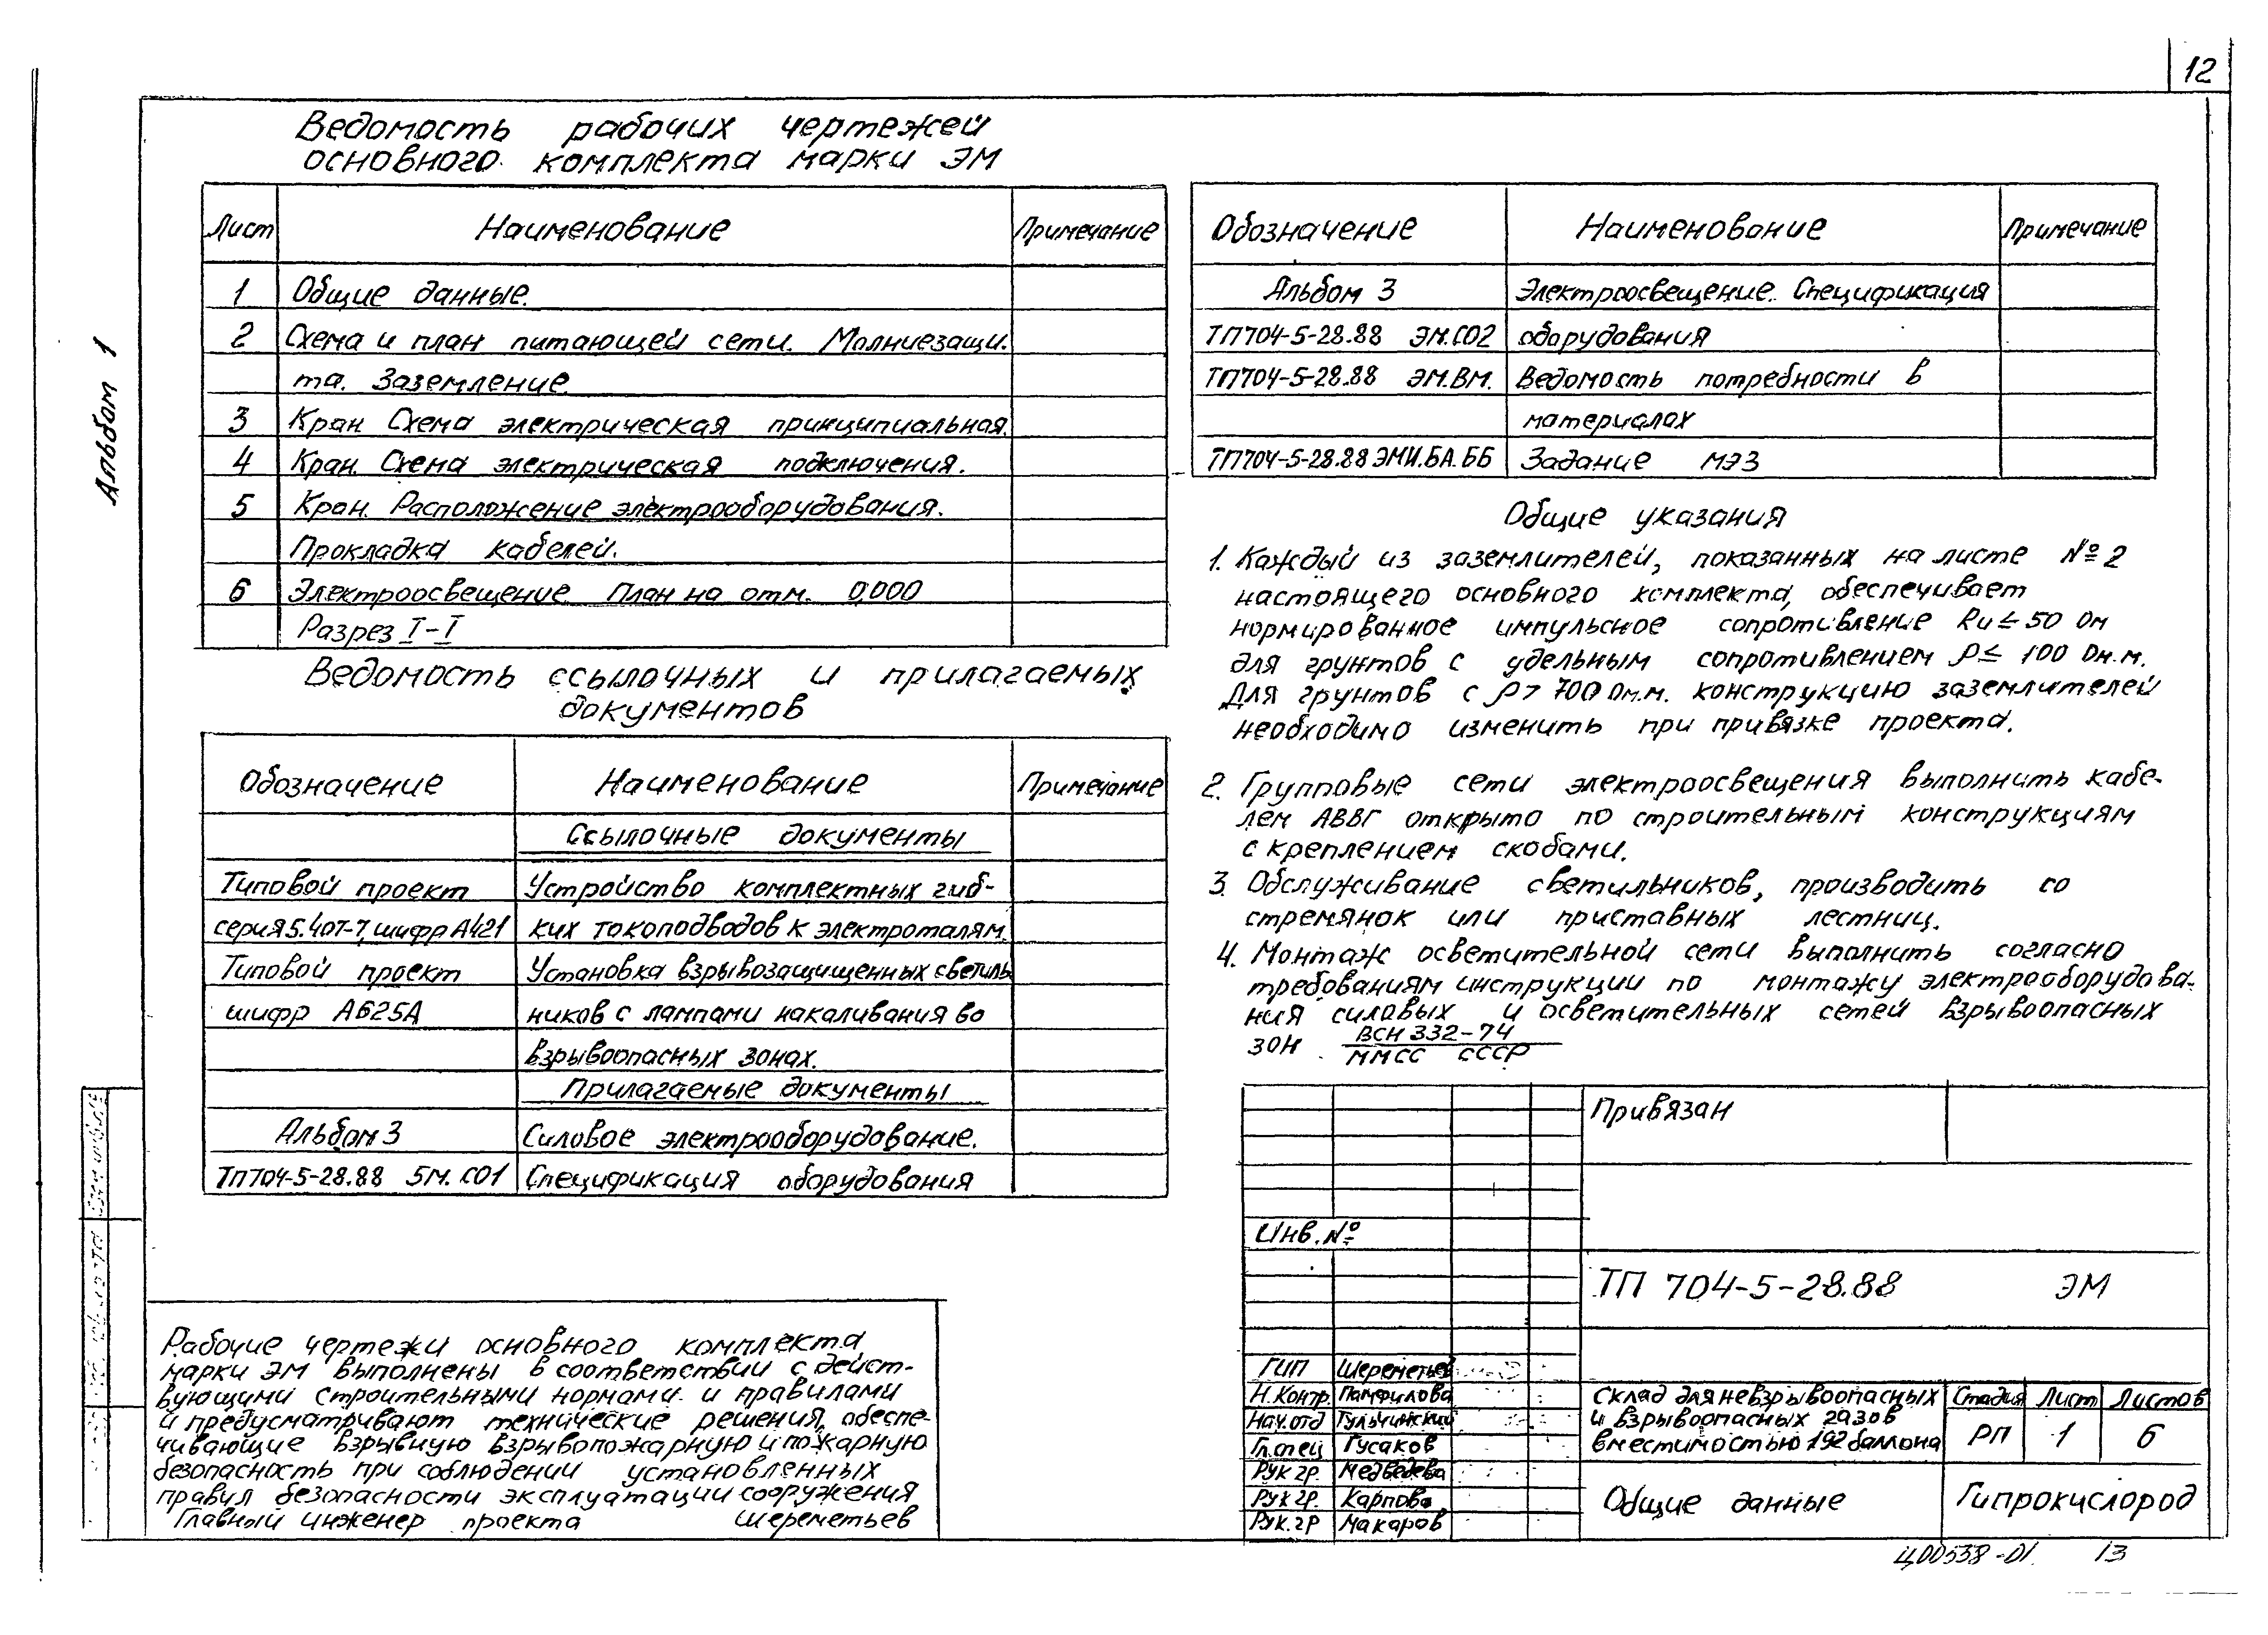 12
Альбом 1
Ведомость рабочих чертежей
основного комплекта марки ЭМ
Лист Наименование Примечание
1 Общие данные.
2 Схема и план питающей сети. Молниезащи-
та. Заземление.
3 Кран Схема электрическая принципиальная.
4 Кран. Схема электрическая подключения.
5 Кран. Расположение электрооборудования.
Прокладка кабелей.
6 Электроосвещение. План на отм. 0,000
Разрез I-I
Ведомость ссылочных и прилагаемых
документов
Обозначение Наименование Примечание
Ссылочные документы
Типовой проект Устройство комплектных гиб-
серия 5.407-7, шифр А421 ких токоподводов к электроталям.
Типовой проект Установка взрывозащищенных светиль
шифр А625А ников с лампами накаливания во
взрывоопасных зонах.
Прилагаемые документы
Альбом 3 Силовое электрооборудование.
ТП704-5-28.88 5М.СО1 Спецификация оборудования
Обозначение Наименование Примечание
Альбом 3 Электроосвещение. Спецификация
ТП704-5-28.88 ЭМ.СО2 оборудования
ТП704-5-28.88 ЭМ.ВМ. Ведомость потребности в
материалах
ТП704-5-28.88 ЭМИ.БА.ББ Задание МЭЗ
Общие указания
1. Каждый из заземлителей, показанных на листе №2
настоящего основного комплекта, обеспечивает
нормированное импульсное сопротивление Rи ≤ 50 Ом
для грунтов с удельным сопротивлением ρ ≤ 100 Ом.м.
Для грунтов с ρ > 700 Ом.м. конструкцию заземлителей
необходимо изменить при привязке проекта.
2. Групповые сети электроосвещения выполнить кабе-
лем АВВГ открыто по строительным конструкциям
с креплением скобами.
3. Обслуживание светильников, производить со
стремянок или приставных лестниц.
4. Монтаж осветительной сети выполнить согласно
требованиям инструкции по монтажу электрооборудова-
ния силовых и осветительных сетей взрывоопасных
зон ВСН 332-74
ММСС СССР
Рабочие чертежи основного комплекта
марки ЭМ выполнены в соответствии с дейст-
вующими строительными нормами и правилами
и предусматривают технические решения, обеспе-
чивающие взрывную взрывопожарную и пожарную
безопасность при соблюдении установленных
правил безопасности эксплуатации сооружения
Главный инженер проекта Шереметьев
Привязан
Инв. №
ТП 704-5-28.88 ЭМ
ГИП Шереметьев
Н.Контр. Памфилова
Нач.отд Тульчинский
Гл.спец Гусаков
Рук гр. Медведева
Рук гр. Карпова
Рук. гр Макаров
Склад для невзрывоопасных
и взрывоопасных газов
вместимостью 192 баллона
Стадия Лист Листов
РП 1 6
Общие данные
Гипрокислород
Ц00538-01 13